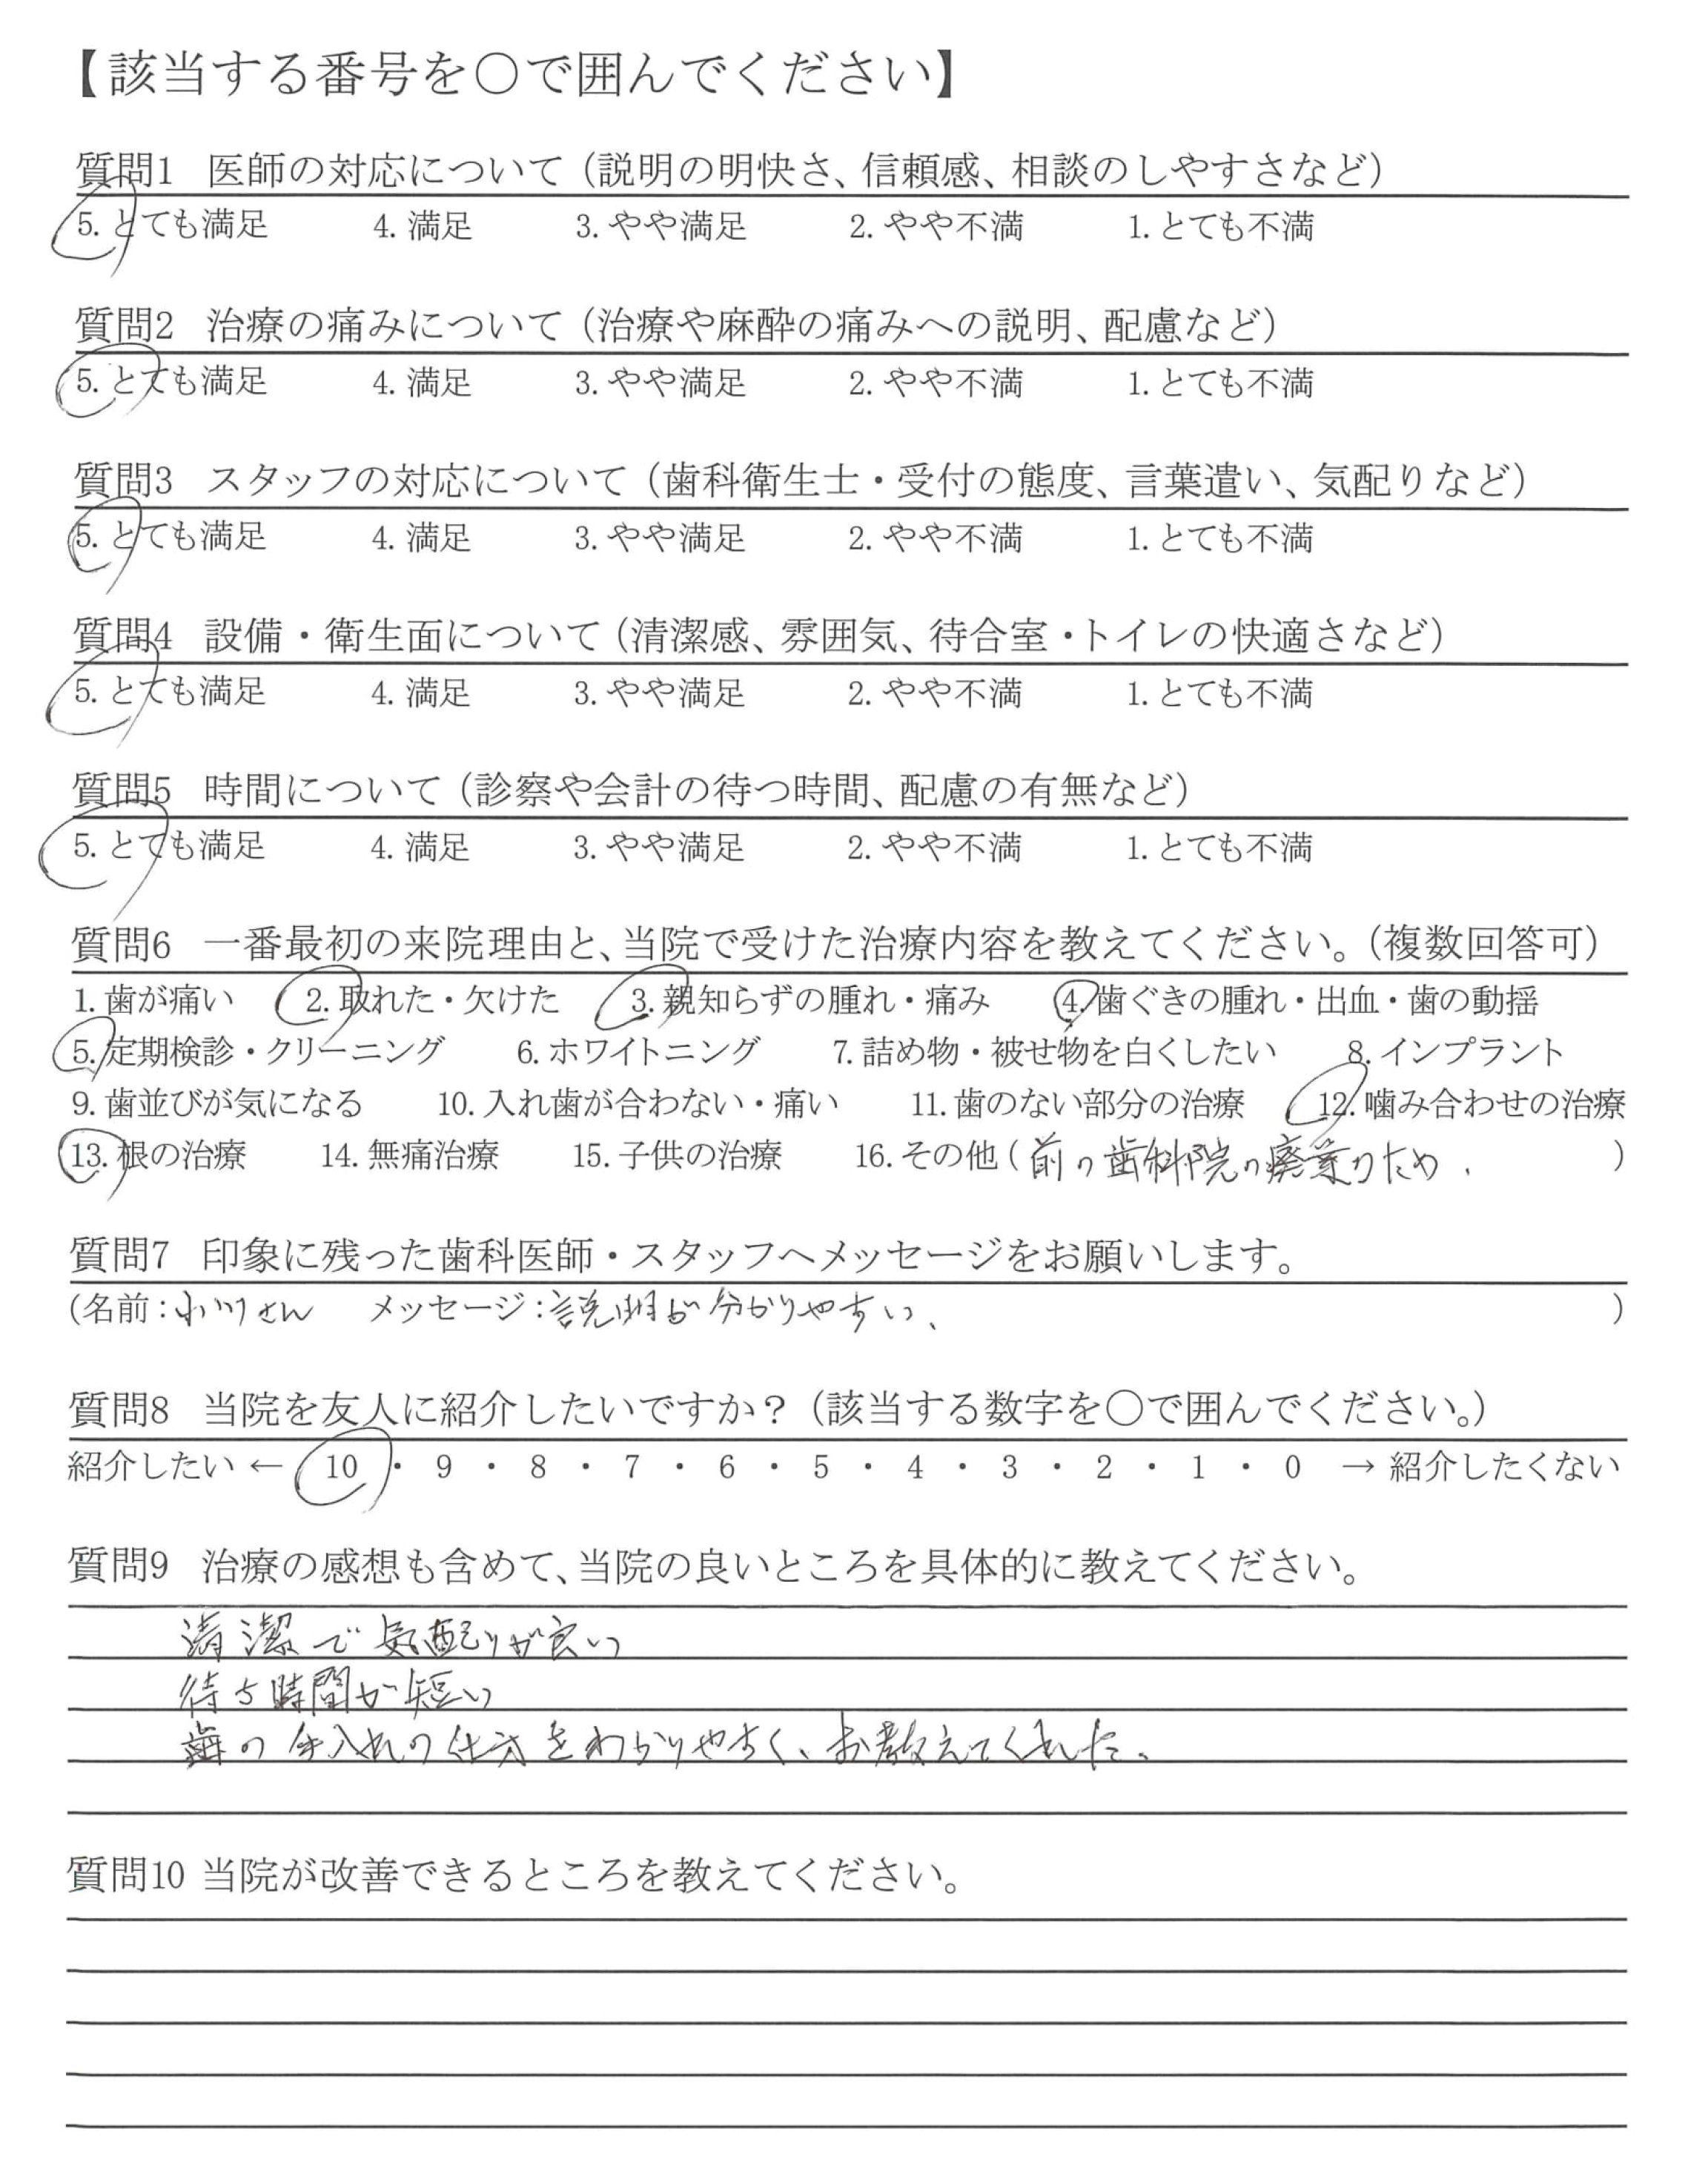 【該当する番号を〇で囲んでください】
質問1 医師の対応について（説明の明快さ、信頼感、相談のしやすさなど）
5. とても満足 4. 満足 3. やや満足 2. やや不満 1. とても不満
質問2 治療の痛みについて（治療や麻酔の痛みへの説明、配慮など）
5. とても満足 4. 満足 3. やや満足 2. やや不満 1. とても不満
質問3 スタッフの対応について（歯科衛生士・受付の態度、言葉遣い、気配りなど）
5. とても満足 4. 満足 3. やや満足 2. やや不満 1. とても不満
質問4 設備・衛生面について（清潔感、雰囲気、待合室・トイレの快適さなど）
5. とても満足 4. 満足 3. やや満足 2. やや不満 1. とても不満
質問5 時間について（診察や会計の待つ時間、配慮の有無など）
5. とても満足 4. 満足 3. やや満足 2. やや不満 1. とても不満
質問6 一番最初の来院理由と、当院で受けた治療内容を教えてください。（複数回答可）
1. 歯が痛い 2. 取れた・欠けた 3. 親知らずの腫れ・痛み 4. 歯ぐきの腫れ・出血・歯の動揺
5. 定期検診・クリーニング 6. ホワイトニング 7. 詰め物・被せ物を白くしたい 8. インプラント
9. 歯並びが気になる 10. 入れ歯が合わない・痛い 11. 歯のない部分の治療 12. 噛み合わせの治療
13. 根の治療 14. 無痛治療 15. 子供の治療 16. その他（前の歯科院の廃業のため.）
質問7 印象に残った歯科医師・スタッフへメッセージをお願いします。
（名前：さん メッセージ：説明が分かりやすい、）
質問8 当院を友人に紹介したいですか？（該当する数字を〇で囲んでください。）
紹介したい ← 10 ・ 9 ・ 8 ・ 7 ・ 6 ・ 5 ・ 4 ・ 3 ・ 2 ・ 1 ・ 0 → 紹介したくない
質問9 治療の感想も含めて、当院の良いところを具体的に教えてください。
清潔で気配りが良い
待ち時間が短い
歯の手入れの仕方をわかりやすく、お教えてくれた。
質問10 当院が改善できるところを教えてください。